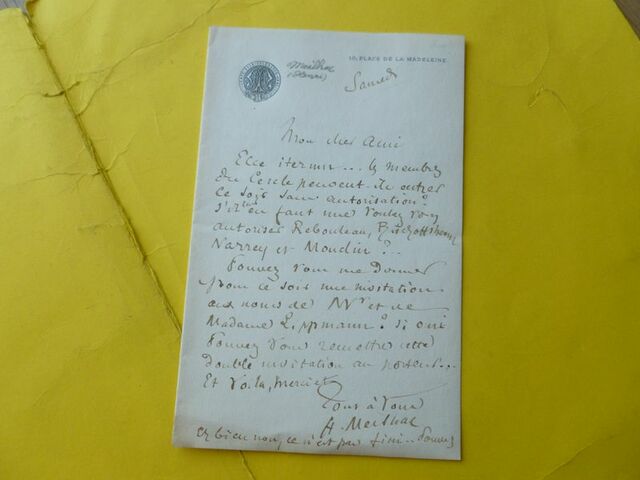 10, PLACE DE LA MADELEINE
Meilhac
(Henri)
Samedi
Mon cher Ami
Ecce iterum... les membres
du Cercle peuvent ils entrer
ce soir sans autorisation?
S'il en faut une voulez vous
autoriser Rebouleau, Bischoffsheim
Narrey et Moudin?..
Pouvez vous me donner
pour ce soir une invitation
aux noms de Mr et de
Madame Lippmann? Si oui
Pouvez vous remettre cette
double invitation au porteur...
Et voila, merci et
Tout à vous
H. Meilhac
Eh bien non, ce n'est pas fini.. Pouvez